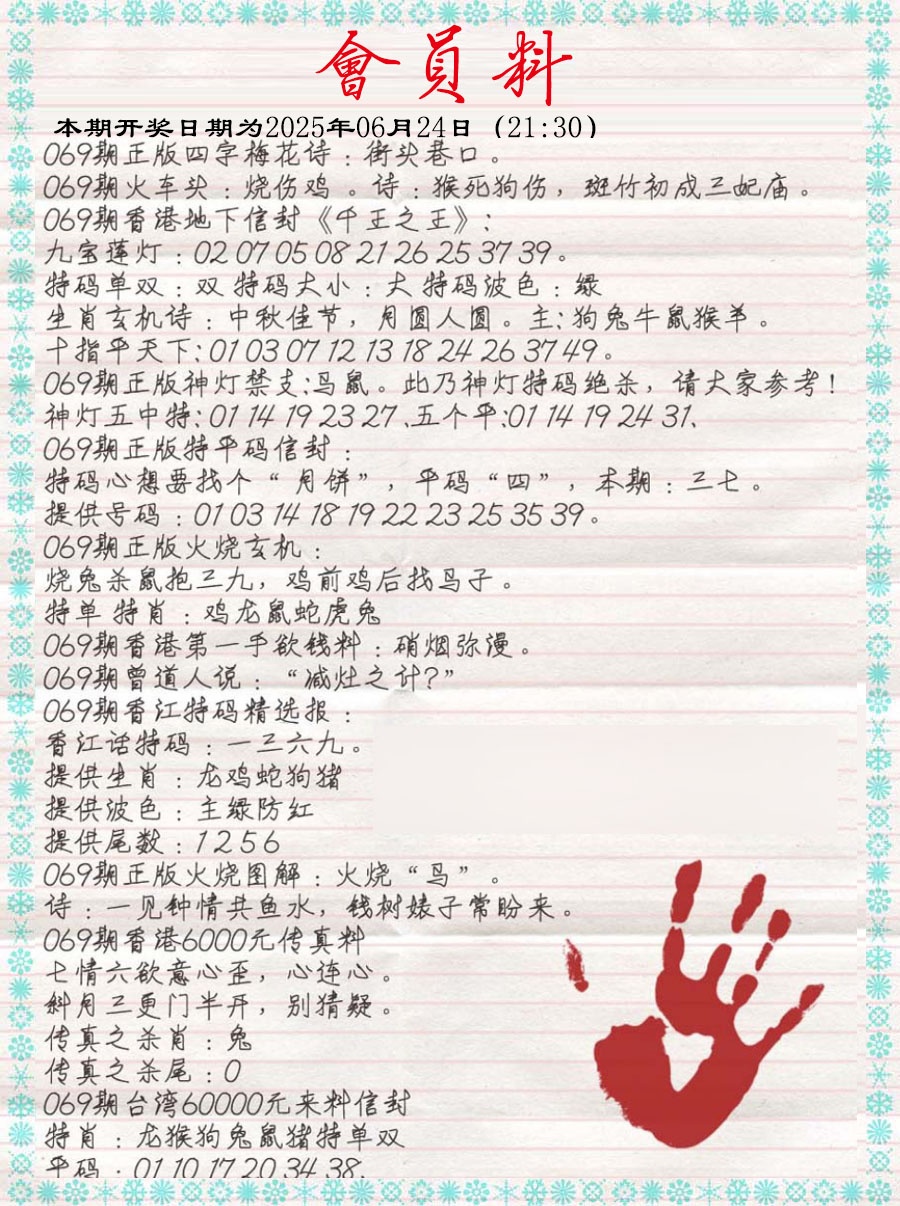 會員料
本期开奖日期为2025年06月24日（21:30）
069期正版四字梅花诗：街头巷口。
069期火车头：烧伤鸡。诗：猴死狗伤，斑竹初成三妃庙。
069期香港地下信封《千王之王》：
九宝莲灯：02 07 05 08 21 26 25 37 39。
特码单双：双 特码大小：大 特码波色：绿
生肖玄机诗：中秋佳节，月圆人圆。主:狗兔牛鼠猴羊。
十指平天下:01 03 07 12 13 18 24 26 37 49。
069期正版神灯禁支:马鼠。此乃神灯特码绝杀，请大家参考！
神灯五中特:01 14 19 23 27、五个平:01 14 19 24 31、
069期正版特平码信封：
特码心想要找个“月饼”，平码“四”，本期：三七。
提供号码：01 03 14 18 19 22 23 25 35 39。
069期正版火烧玄机：
烧兔杀鼠抱三九，鸡前鸡后找马子。
特单 特肖：鸡龙鼠蛇虎兔
069期香港第一手欲钱料：硝烟弥漫。
069期曾道人说：“减灶之计？”
069期香江特码精选报：
香江话特码：一三六九。
提供生肖：龙鸡蛇狗猪
提供波色：主绿防红
提供尾数：1 2 5 6
069期正版火烧图解：火烧“鸟”。
诗：一见钟情共鱼水，钱树婊子常盼来。
069期香港6000元传真料
七情六欲意心歪，心连心。
斜月三更门半开，别猜疑。
传真之杀肖：兔
传真之杀尾：0
069期台湾60000元来料信封
特肖：龙猴狗兔鼠猪特单双
平码：01 10 17 20 34 38、